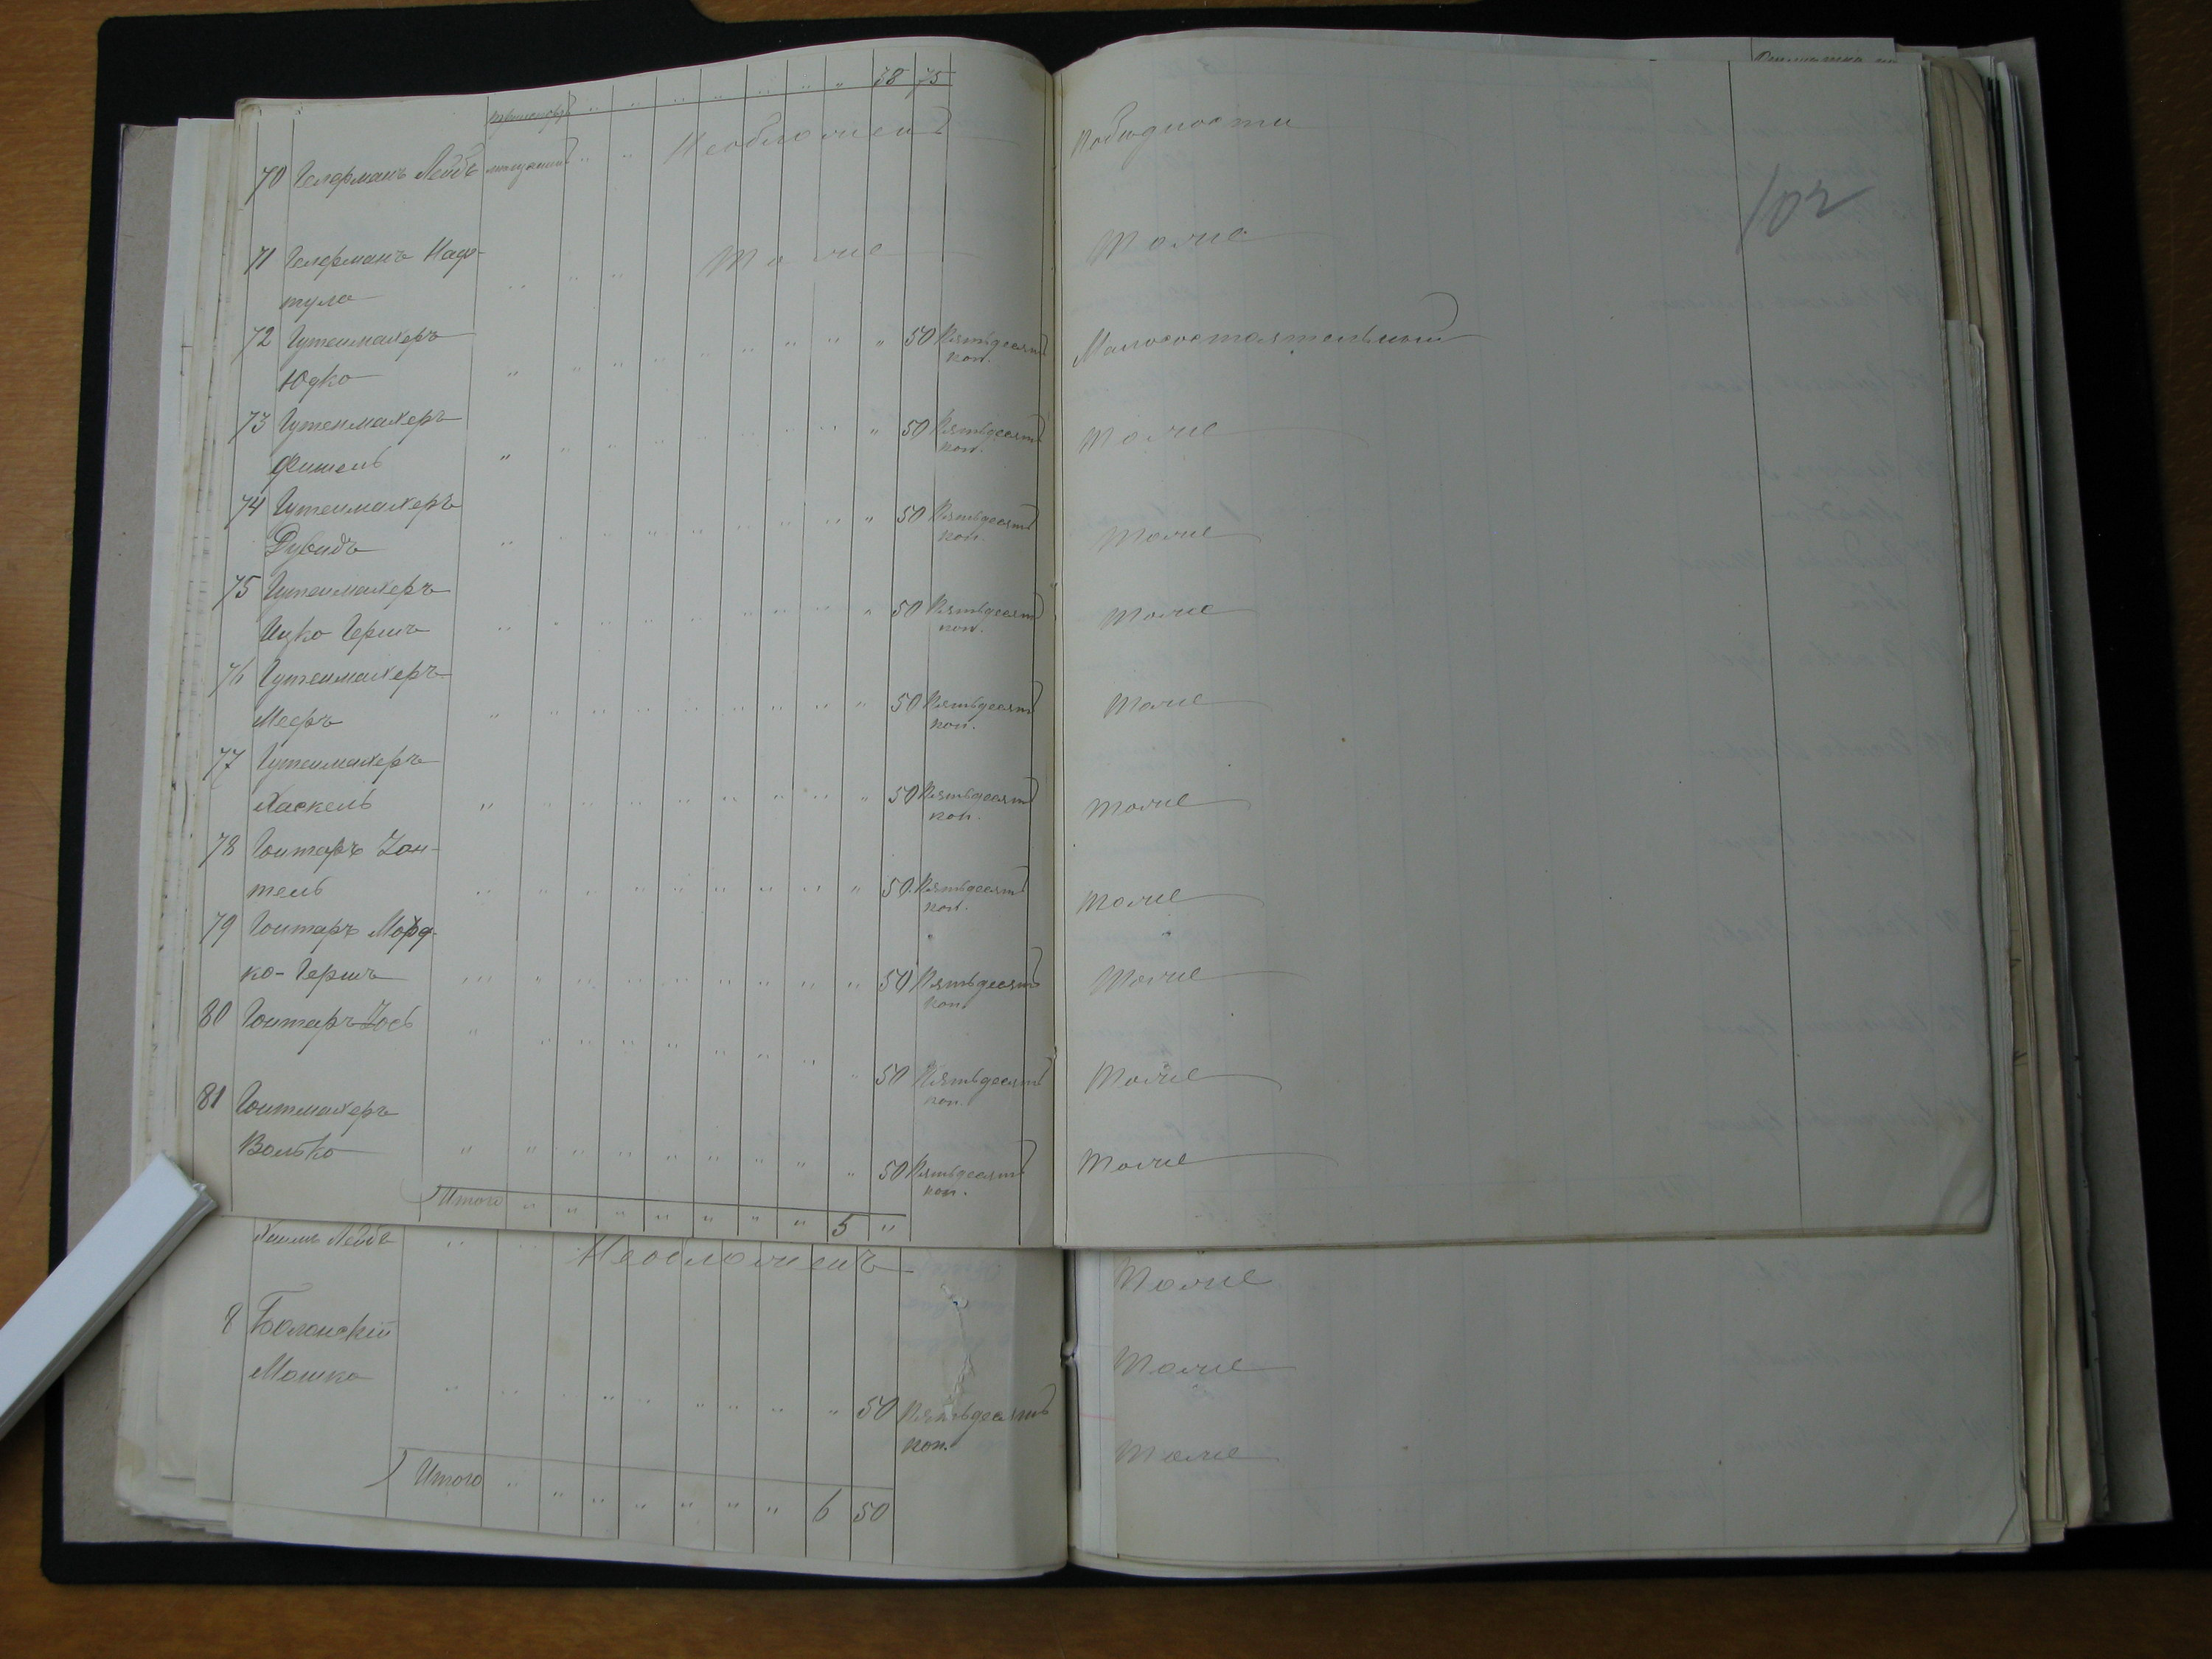 транспортъ " " " " " " " 38 75
70 Гелерманъ Лейбъ мѣщанинъ " " Необложенъ По бѣдности
102
71 Гелерманъ Наф-
тула " " " Тоже Тоже
72 Гутенмахеръ
Юдко " " " " " " " " " 50 Пятьдесятъ коп. Малосостоятельный
73 Гутенмахеръ
Фишель " " " " " " " " " 50 Пятьдесятъ коп. Тоже
74 Гутенмахеръ
Дувидъ " " " " " " " " " 50 Пятьдесятъ коп. Тоже
75 Гутенмахеръ
Ицко Гершъ " " " " " " " " " 50 Пятьдесятъ коп. Тоже
76 Гутенмахеръ
Мееръ " " " " " " " " " 50 Пятьдесятъ коп. Тоже
77 Гутенмахеръ
Хаскель " " " " " " " " " 50 Пятьдесятъ коп. Тоже
78 Гонтаръ Зан-
тель " " " " " " " " " 50 Пятьдесятъ коп. Тоже
79 Гонтаръ Морд-
ко-Гершъ " " " " " " " " " 50 Пятьдесятъ коп. Тоже
80 Гонтаръ Іось " " " " " " " " " 50 Пятьдесятъ коп. Тоже
81 Гонтмахеръ
Волько " " " " " " " " " 50 Пятьдесятъ коп. Тоже
Итого " " " " " " " 5 "
Хаимъ Лейбъ " " Необложенъ Тоже
8 Балонскій Тоже
Мошко " " " " " " " " 50 Пятьдесятъ коп. Тоже
Итого " " " " " " " 6 50